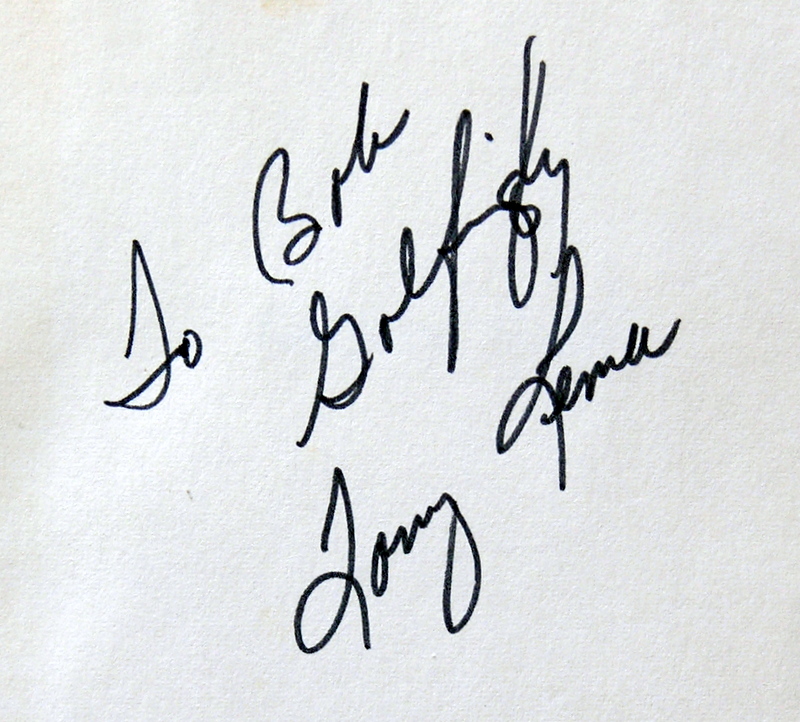 To Bob
Golfingly
Tony Lema